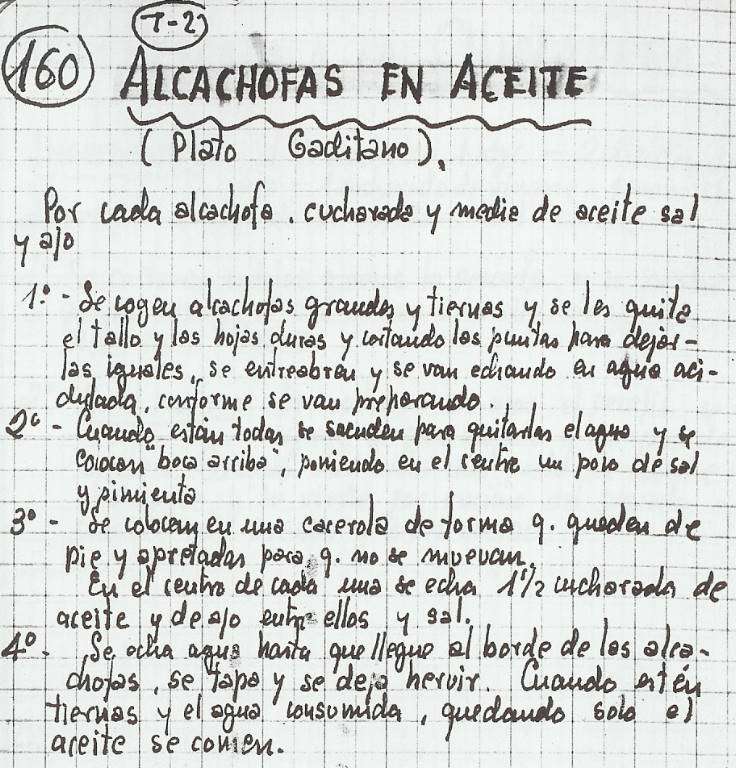 T-2
160 ALCACHOFAS EN ACEITE
(Plato Gaditano).
Por cada alcachofa. cucharada y media de aceite sal
y ajo
1º - Se cogen alcachofas grandes y tiernas y se les quita
el tallo y las hojas duras y cortando las puntas para dejar-
las iguales, se entreabren y se van echando en agua aci-
dulada, conforme se van preparando.
2º - Cuando están todas se sacuden para quitarlas el agua y se
colocan "boca arriba", poniendo en el centro un poco de sal
y pimienta
3º - Se colocan en una cacerola de forma q. queden de
pie y apretadas para q. no se muevan.
En el centro de cada una se echa 1 1/2 cucharada de
aceite y de ajo entre ellos y sal.
4º - Se echa agua hasta que llegue al borde de las alca-
chofas, se tapa y se deja hervir. Cuando estén
tiernas y el agua consumida, quedando solo el
aceite se comen.